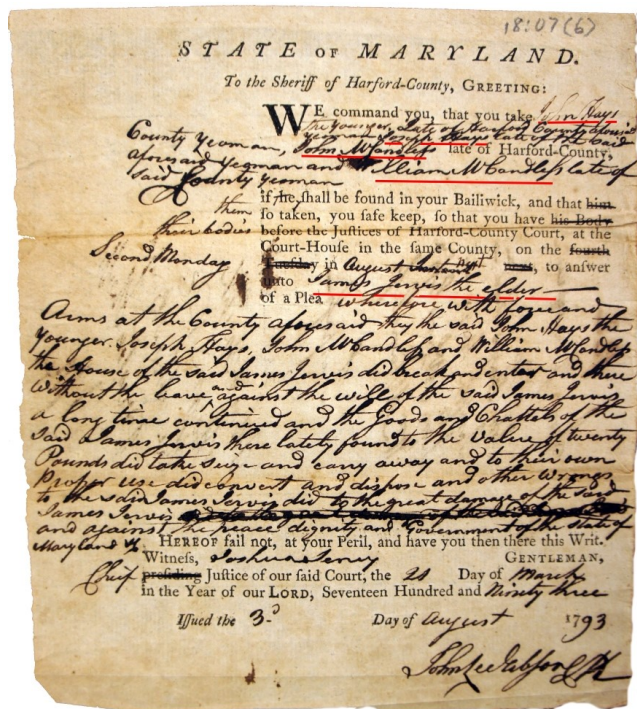 18:07(6)
STATE OF MARYLAND.
To the Sheriff of Harford-County, GREETING:
WE command you, that you take John Hays
the younger, late of Harford County aforesaid
yeoman Joseph Hays late of the said
County yeoman, John McCandless late of Harford-County,
aforesaid yeoman and William McCandless late of
said County yeoman
if they shall be found in your Bailiwick, and that him
them so taken, you safe keep, so that you have his Body
their bodies before the Justices of Harford-County Court, at the
Court-House in the same County, on the fourth
Second Monday Tuesday in August next, to answer
unto James Jervis the elder
of a Plea wherefore with force and
Arms at the County aforesaid they the said John Hays the
younger Joseph Hays, John McCandless and William McCandless
the House of the said James Jervis did break and enter and there
without the leave and against the will of the said James Jervis
a long time continued and the Goods and Chattels of the
said James Jervis there lately found to the value of twenty
Pounds did take seize and carry away and to their own
Proper use did convert and dispose and other wrongs
to the said James Jervis did to the great damage of the said
James Jervis
and against the peace dignity and Government of the state of
Maryland &c. HEREOF fail not, at your Peril, and have you then there this Writ.
Witness, GENTLEMAN,
Chief presiding Justice of our said Court, the Day of March
in the Year of our LORD, Seventeen Hundred and Ninety three
Issued the 3d Day of August 1793